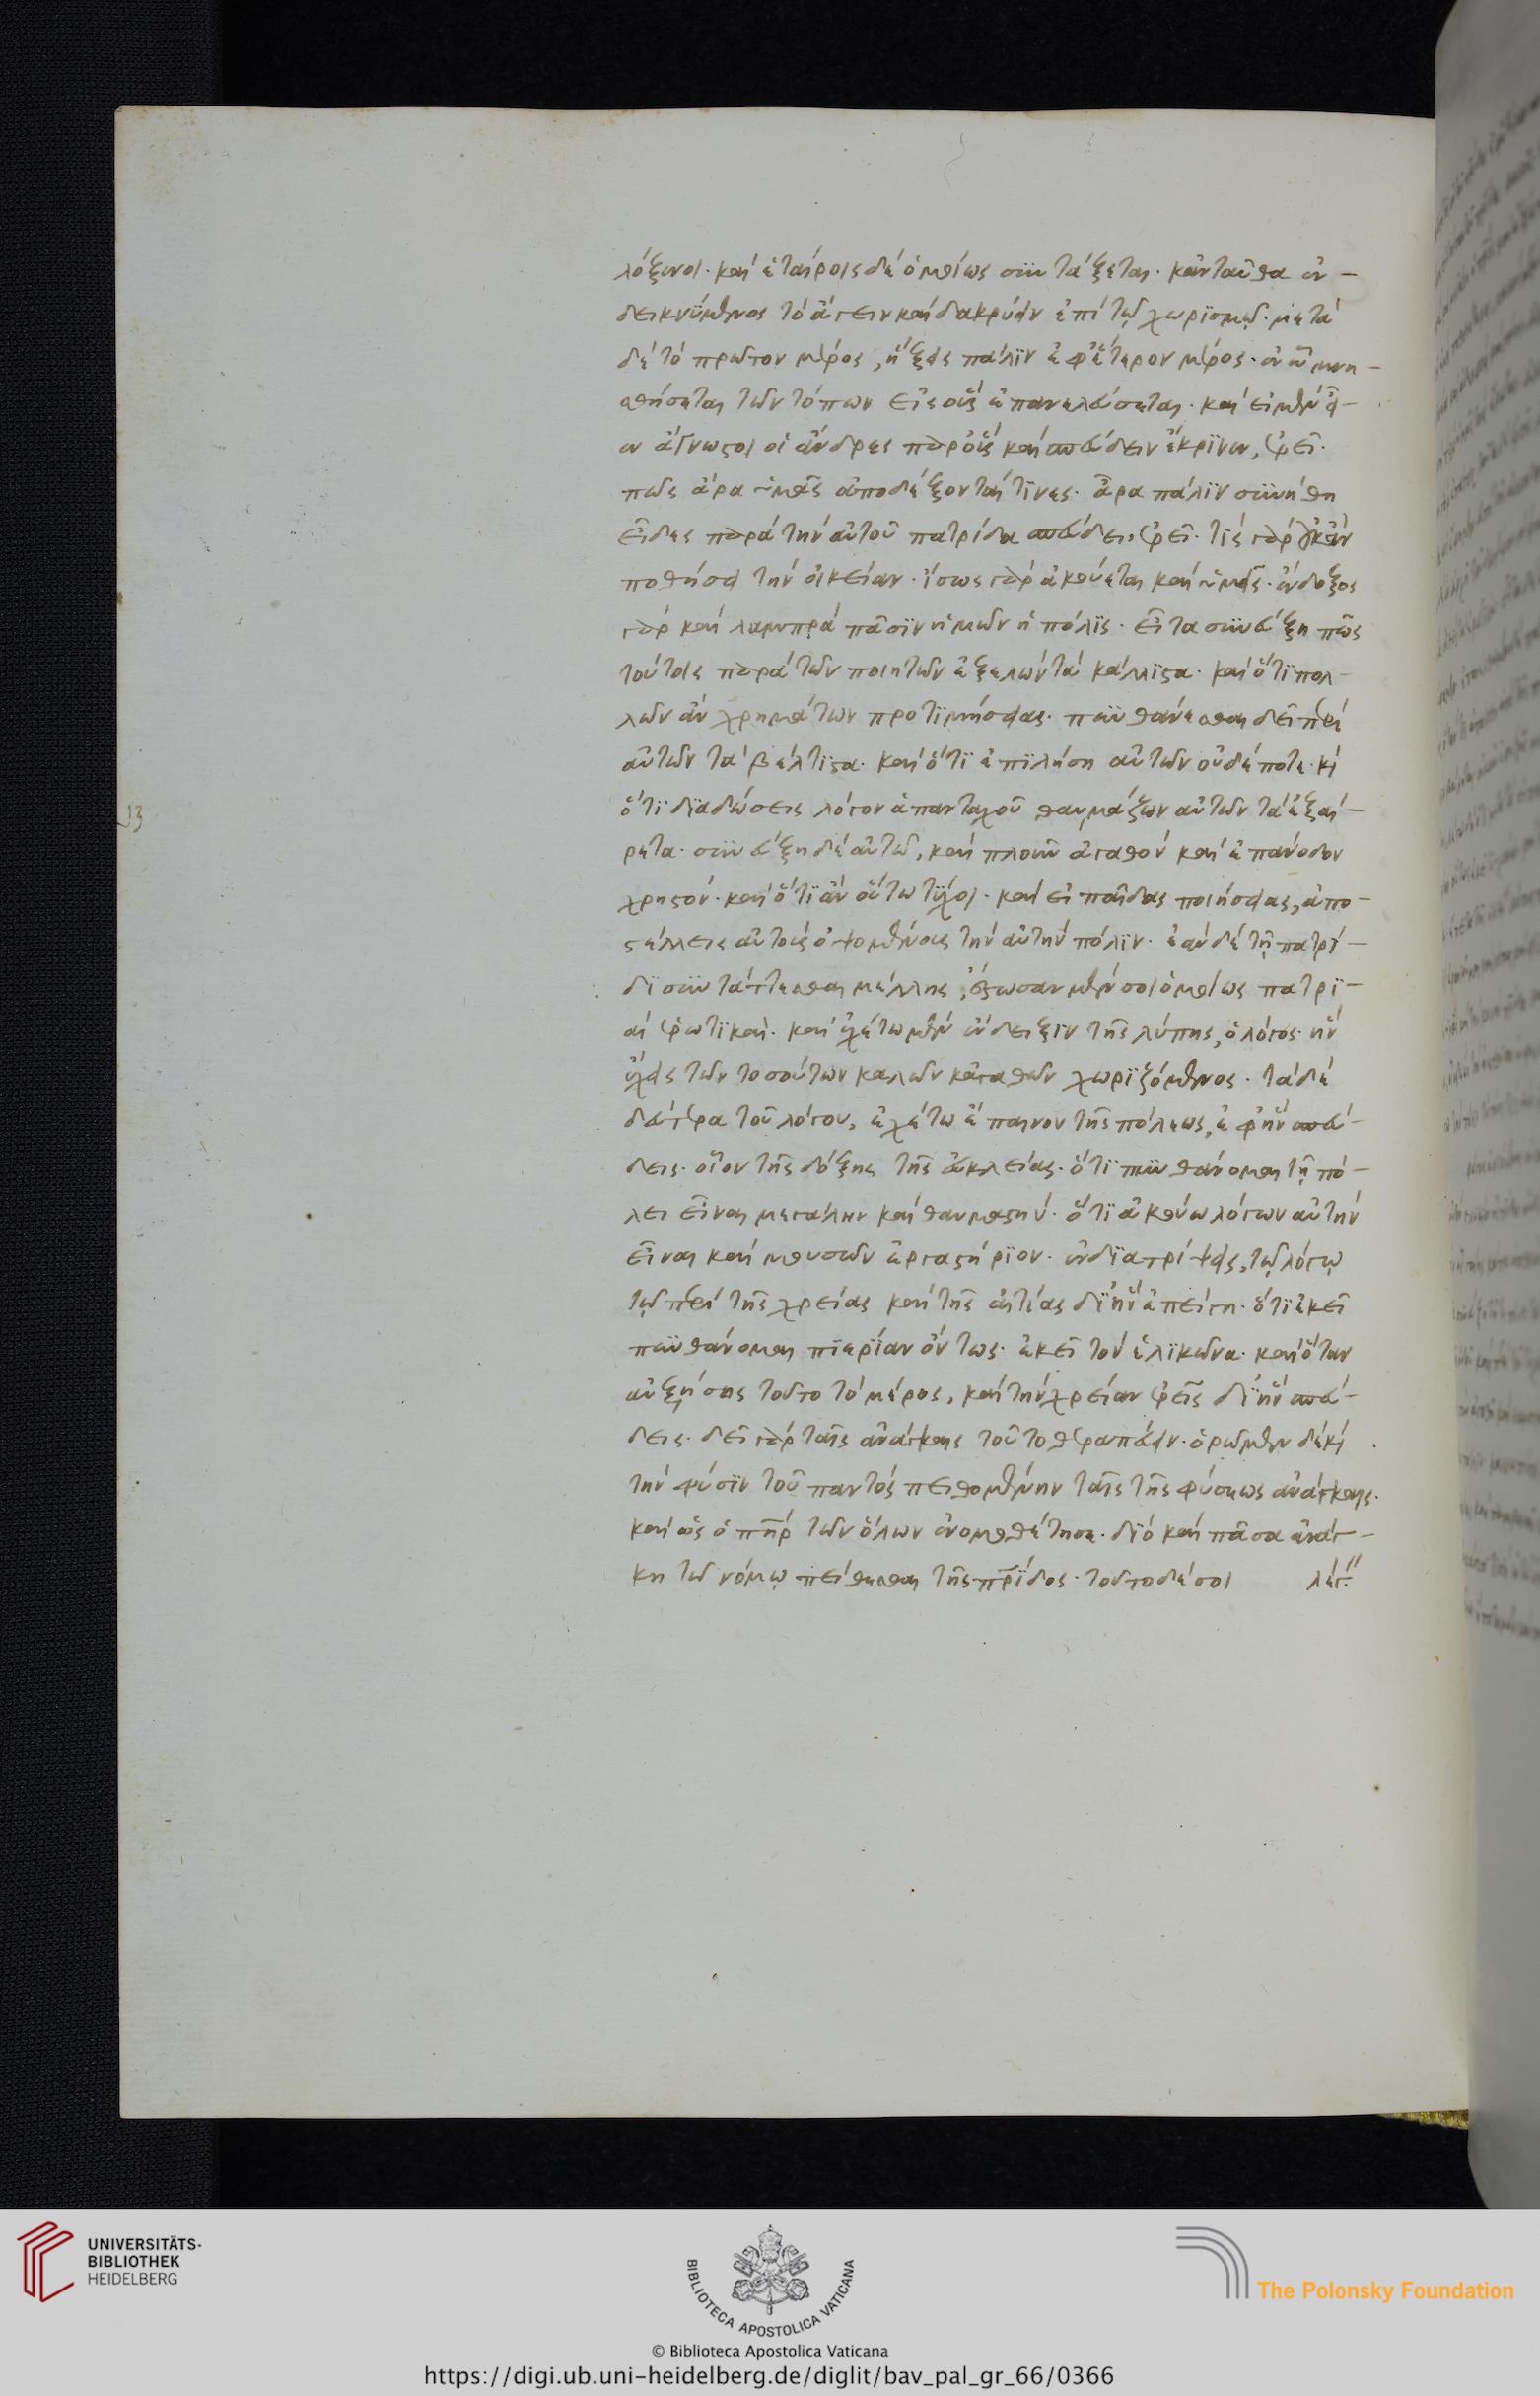 λόξενοι· καὶ ἑταίροις δὲ ὁμοίως συντάξεται· κἀνταῦθα ἐν-
δεικνύμενος τὸ ἄγειν καὶ δακρύειν ἐπὶ τῷ χωρισμῷ· μετὰ
δὲ τὸ πρῶτον μέρος, ἥξεις πάλιν ἐφ' ἕτερον μέρος· ἐν ᾧ μνη-
σθήσεται τῶν τόπων εἰς οὓς ἐπανελεύσεται· καὶ εἰ μὲν εἶ-
εν ἄγνωστοι οἱ ἄνδρες παρ' οὓς καὶ σπεύδειν ἔκρινεν, ἐρεῖ·
πῶς ἄρα ἡμᾶς ἀποδέξονται τινες· ἆρα πάλιν συνήθη
εἶδες παρὰ τὴν αὐτοῦ πατρίδα σπεύδει, ἐρεῖ· τίς γὰρ οὐκ ἂν
ποθήσει τὴν οἰκείαν· ἴσως γὰρ ἀκούεται καὶ ὑμεῖς· ἔνδοξος
γὰρ καὶ λαμπρὰ πᾶσιν ἡμῶν ἡ πόλις· εἶτα συνεύξη πῶς
τούτοις παρὰ τῶν ποιητῶν ἐξελὼν τὰ κάλλιστα· καὶ ὅτι πολ-
λῶν ἂν χρημάτων προτιμήσειας· πυνθάνεσθαι δεῖ περὶ
αὐτῶν τὰ βέλτιστα· καὶ ὅτι ἐπιλήση αὐτῶν οὐδέποτε· καὶ
ὅτι διαδώσεις λόγον ἁπανταχοῦ θαυμάζων αὐτῶν τὰ ἐξαί-
ρετα· συνεύξη δὲ αὐτῷ, καὶ πλοῦν ἀγαθὸν καὶ ἐπάνοδον
χρηστόν· καὶ ὅτι ἂν οὕτω τύχοι· καὶ εἰ παῖδας ποιήσειας, ἀπο-
στέλλεις αὐτοὺς ὀψομένους τὴν αὐτὴν πόλιν· ἐὰν δὲ τῇ πατρί-
δι συντάττεσθαι μέλλῃς, ἔστωσαν μέν σοι ὁμοίως πατρι-
αὶ ἐρωτικαί· καὶ ἐχέτω μὲν ἔνδειξιν τῆς λύπης, ὁ λόγος· ἣν
ἔχεις τῶν τοσούτων καλῶν κἀγαθῶν χωριζόμενος· τὰ δὲ
δεύτερα τοῦ λόγου, ἐχέτω ἔπαινον τῆς πόλεως, ἐφ' ἣν σπεύ-
δεις· οἷον τῆς δόξης τῆς εὐκλείας· ὅτι πυνθάνομαι τῇ πό-
λει εἶναι μεγάλην καὶ θαυμαστήν· ὅτι ἀκούω λόγων αὐτὴν
εἶναι καὶ μουσῶν ἐργαστήριον· ἐνδιατρίψεις, τῷ λόγῳ
τῷ περὶ τῆς χρείας καὶ τῆς αἰτίας δι' ἣν ἐπείγη· ὅτι ἐκεῖ
πυνθάνομαι πιερίαν ὄντως· ἐκεῖ τὸν ἑλικῶνα· καὶ ὅταν
αὐξήσῃς τοῦτο τὸ μέρος, καὶ τὴν χρείαν ἐρεῖς δι' ἣν σπεύ-
δεις· δεῖ γὰρ ταῖς ἀνάγκαις τοῦτο θεραπεύειν· ὁρῶμεν δὲ καὶ
τὴν φύσιν τοῦ παντὸς πειθομένην ταῖς τῆς φύσεως ἀνάγκαις·
καὶ ὡς ὁ πὴρ τῶν ὅλων ἐνομοθέτησε· διὸ καὶ πᾶσα ἀνάγ-
κη τῷ νόμῳ πείθεσθαι τῆς πρίδος· τοῦτο δέ σοι λέγ.
13
UNIVERSITÄTS-
BIBLIOTHEK
HEIDELBERG
BIBLIOTECA APOSTOLICA VATICANA
The Polonsky Foundation
© Biblioteca Apostolica Vaticana
https://digi.ub.uni-heidelberg.de/diglit/bav_pal_gr_66/0366